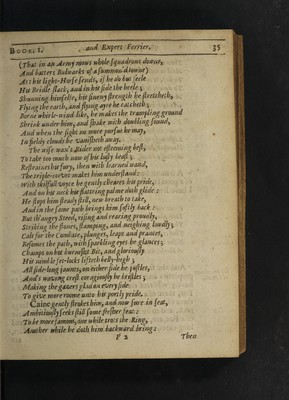 BOOK. I. and Expert Ferrier. 35
(That in an Army mows whole squadrons downe,
And batters Bulwarks of a summon'd towne)
At his light-Horse sends, if he do but feele
His Bridle slack, and in his side the heele;
Shunning himselfe, his sinewy strength he stretcheth,
Flying the earth, and flying ayre he catcheth;
Borne whirle-wind-like, he makes the trampling ground
Shrink under him, and shake with doubling sound,
And when the sight no more pursue he may,
In fieldy clouds he vanisheth away.
The wise man's Rider not esteeming best,
To take too much now of his lusty beast;
Restraines his fury, then with learned wand,
The triple-corvet makes him understand:
With skilfull voyce he gently cheares his pride,
And on his neck his flattring palme doth glide:
He stops him steady still, new breath to take,
And in the same path brings him softly back:
But th'angry Steed, rising and rearing proudly,
Striking the stones, stamping, and neighing loudly;
Cals for the Combate, plunges, leaps and prances,
Befomes the path, with sparkling eyes he glances;
Champs on his burnisht Bit, and gloriously
His nimble fet-locks lifteth belly-high;
All side-long jaunts, on either side he justles,
And's waving crest coragiously he bristles;
Making the gazers glad on every side,
To give more roome unto his portly pride.
Caine gently strokes him, and now sure in seat,
Ambitiously seeks still some fresher feat:
To be more famous, one while trots the Ring,
Another while he doth him backward bring:
F 2 Then